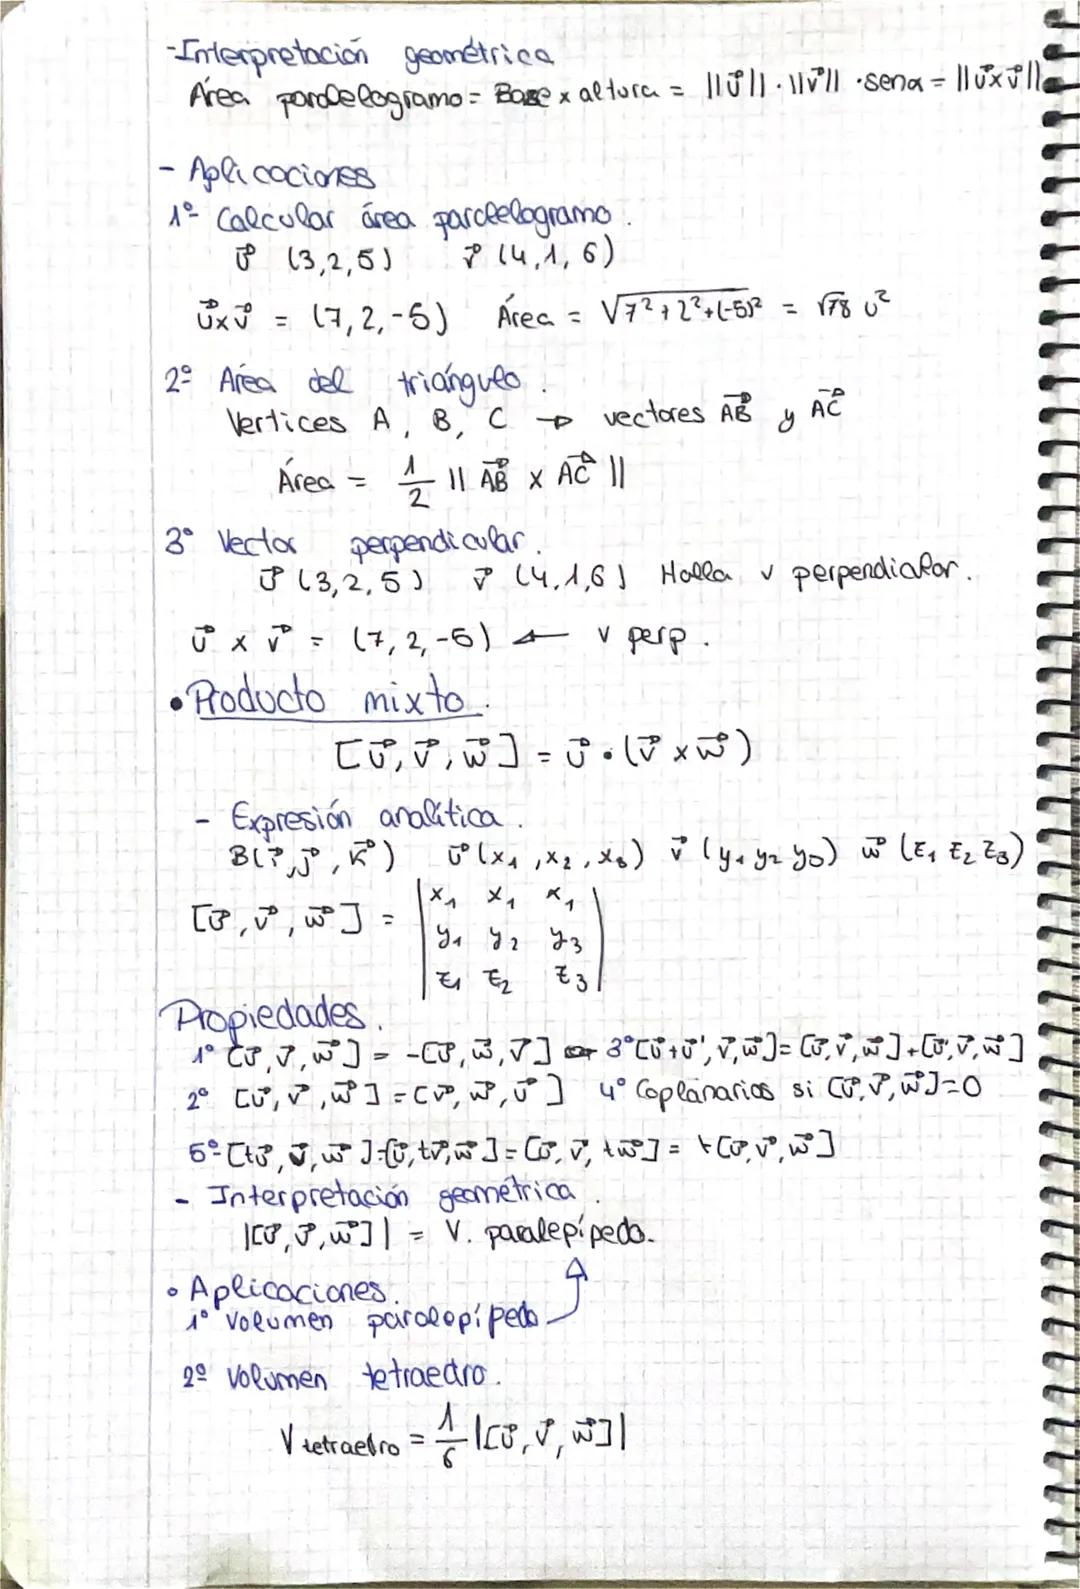 -Interpretación geométrica
Área paralelogramo = Base x altura = ||u⃗|| · ||v⃗|| · senα = ||u⃗xv⃗||
- Aplicaciones
1º Calcular área paralelogramo.
u⃗ (3,2,5) v⃗ (4,1,6)
u⃗xv⃗ = (7,2,-5) Área = √7²+2²+(-5)² = √78 u²
2º Área del triángulo.
Vertices A, B, C → vectores AB⃗ y AC⃗
Área = 1/2 || AB⃗ x AC⃗ ||
3º Vector perpendicular.
u⃗ (3,2,5) v⃗ (4,1,6) Halla v perpendicular.
u⃗ x v⃗ = (7,2,-5) ← v perp.
• Producto mixto.
[u⃗,v⃗,w⃗] = u⃗ • (v⃗ x w⃗)
- Expresión analítica.
B(i⃗,j⃗,k⃗) u⃗ (x₁,x₂,x₃) v⃗ (y₁ y₂ y₃) w⃗ (z₁ z₂ z₃)
[u⃗,v⃗,w⃗] = | x₁ x₁ x₁ |
| y₁ y₂ y₃ |
| z₁ z₂ z₃ |
Propiedades.
1º [u⃗,v⃗,w⃗] = -[u⃗,w⃗,v⃗] 3º [u⃗+u⃗',v⃗,w⃗] = [u⃗,v⃗,w⃗]+[u⃗',v⃗,w⃗]
2º [u⃗,v⃗,w⃗] = [v⃗,w⃗,u⃗] 4º Coplanarios si [u⃗,v⃗,w⃗]=0
5º [tu⃗,v⃗,w⃗]=[u⃗,tv⃗,w⃗]=[u⃗,v⃗,tw⃗] = t[u⃗,v⃗,w⃗]
- Interpretación geométrica.
|[u⃗,v⃗,w⃗]| = V. paralepípedo.
• Aplicaciones.
1º Volumen paralepípedo
2º Volumen tetraedro.
V tetraedro = 1/6 |[u⃗,v⃗,w⃗]|